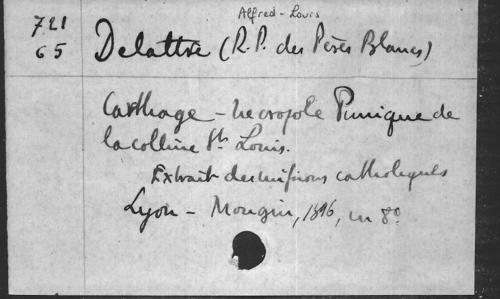 Alfred-Louis
721
65
Delattre (R.P. des Pères Blancs)
Carthage - Necropole Punique de
la colline St Louis.
Extrait des missions catholiques
Lyon - Mougin, 1896, in 8º